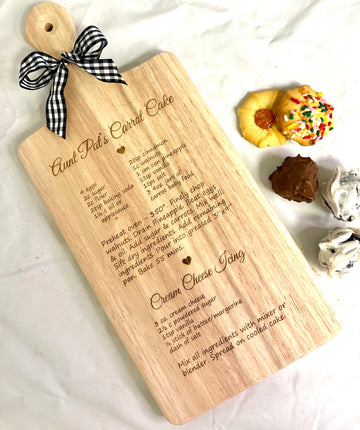 Aunt Pat's Carrot Cake
4 eggs
2c sugar
2c flour
1tsp baking soda
1¼ c oil or
applesauce
2tsp cinnamon
1c walnuts
1 can pineapple
1tsp salt
3 4oz jars of
carrot baby food
Preheat oven - 350°. Finely chop
walnuts. Drain Pineapple. Beat eggs
& oil. Add sugar & carrots. Mix well.
Sift dry ingredients. Add remaining
ingredients. Pour into greased
pan. Bake 55 mins.
Cream Cheese Icing
cream cheese
powdered sugar
1tsp vanilla
stick of butter/margarine
dash of salt
Mix all ingredients with mixer or
blender. Spread on cooled cake.